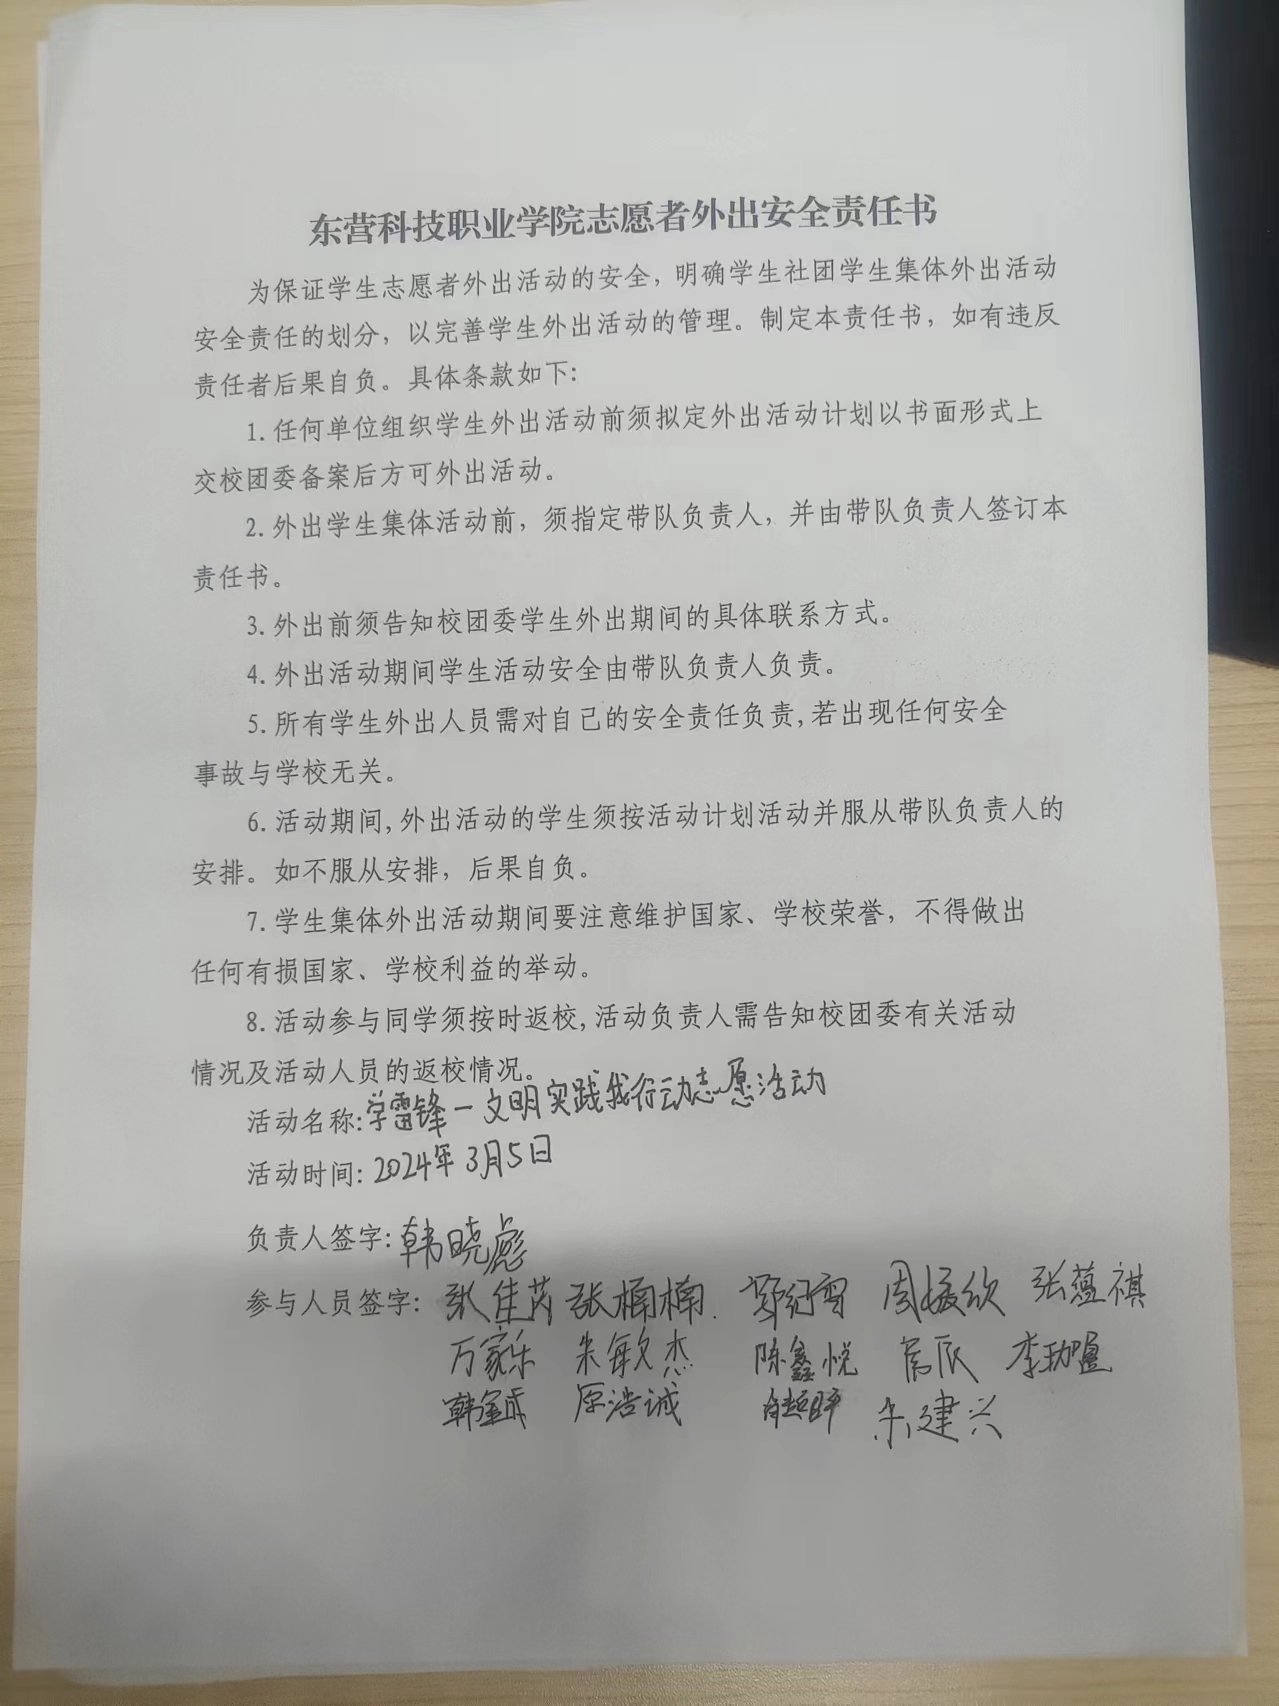 东营科技职业学院志愿者外出安全责任书
为保证学生志愿者外出活动的安全，明确学生社团学生集体外出活动
安全责任的划分，以完善学生外出活动的管理。制定本责任书，如有违反
责任者后果自负。具体条款如下：
1.任何单位组织学生外出活动前须拟定外出活动计划以书面形式上
交校团委备案后方可外出活动。
2.外出学生集体活动前，须指定带队负责人，并由带队负责人签订本
责任书。
3.外出前须告知校团委学生外出期间的具体联系方式。
4.外出活动期间学生活动安全由带队负责人负责。
5.所有学生外出人员需对自己的安全责任负责,若出现任何安全
事故与学校无关。
6.活动期间,外出活动的学生须按活动计划活动并服从带队负责人的
安排。如不服从安排，后果自负。
7.学生集体外出活动期间要注意维护国家、学校荣誉，不得做出
任何有损国家、学校利益的举动。
8.活动参与同学须按时返校,活动负责人需告知校团委有关活动
情况及活动人员的返校情况。
活动名称:学雷锋一文明实践我行动志愿活动
活动时间:2024年3月5日
负责人签字:韩晓彪
参与人员签字: 张佳芮 张楠楠 周媛欣 张蕴祺
万家乐 朱敏杰 陈鑫悦
原浩诚 朱建兴